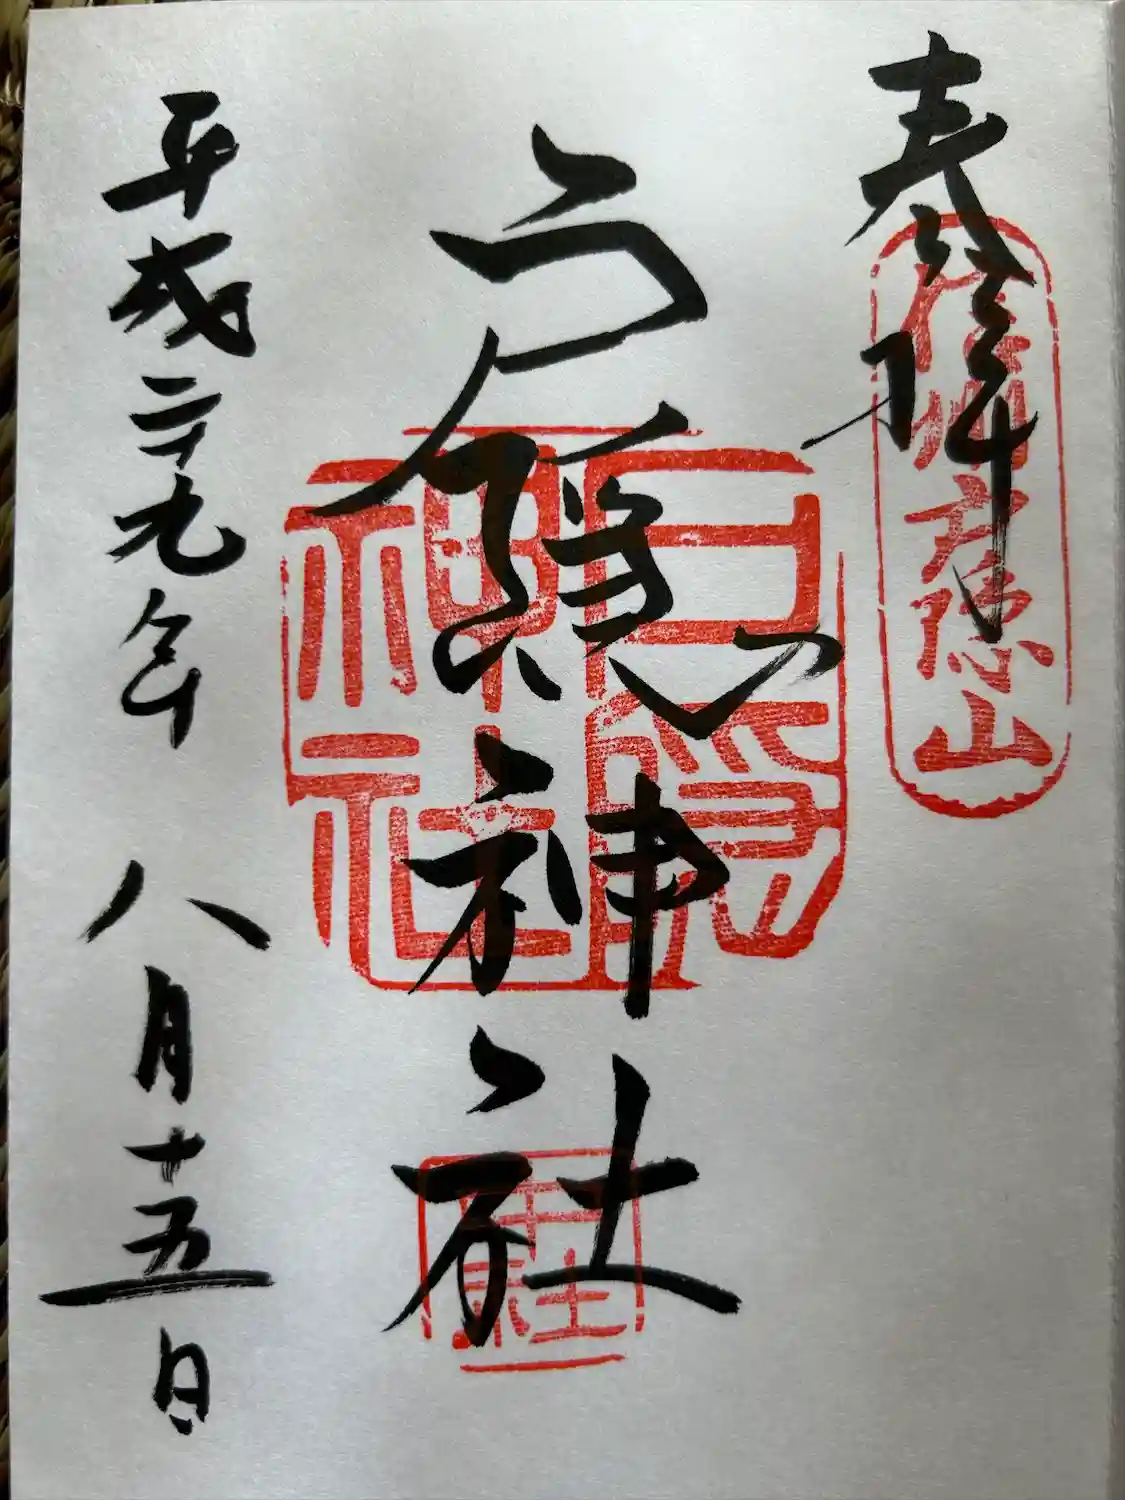 奉拝
信州戸隠山
戸隠神社
戸隠神社
中社
平成二十九年 八月十五日